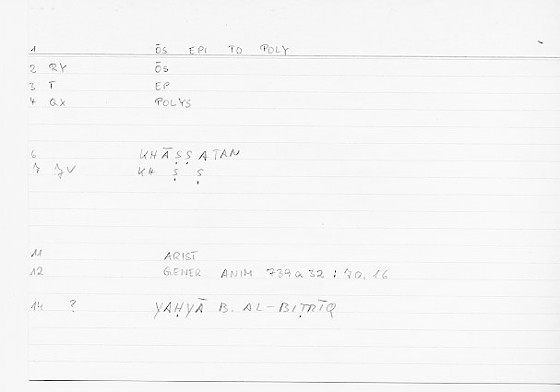 1 ŌS EPI TO POLY
2 RY ŌS
3 T EP
4 QX POLYS
6 KHĀṢṢATAN
7 JV KH Ṣ Ṣ
11 ARIST
12 GENER ANIM 739a32 : 70.16
14 ? YAḤYĀ B. AL-BIṬRĪQ